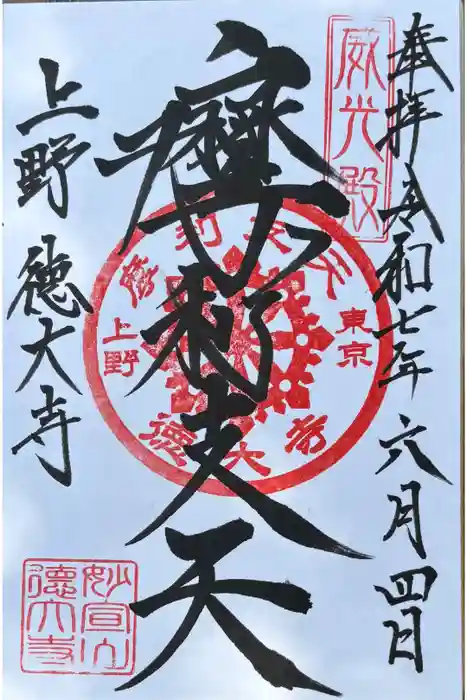 奉拝 令和七年 六月四日
威光殿
摩利支天
摩利支天
東京
上野
徳大寺
上野 徳大寺
妙宣山
徳大寺